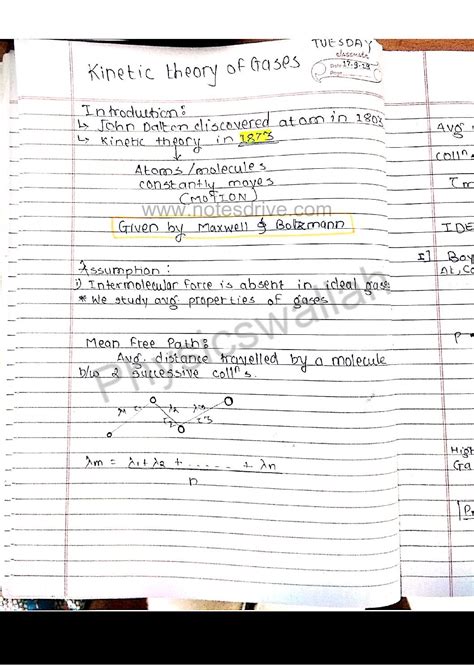 TUESDAY
classmate
Date 17-9-19
Page
Kinetic theory of Gases
Introduction:
↳ John Dalton discovered atom in 1803
↳ Kinetic theory in 1873
↓
Atoms/molecules
constantly moves
(MOTION)
www.notesdrive.com
Given by Maxwell & Boltzmann
Assumption:
i) Intermolecular force is absent in ideal gase
* We study avg properties of gases
Physicswallah
Mean Free Path:
Avg. distance travelled by a molecule
b/w 2 successive collⁿs.
λ1 λ2 λ3
τ2 τ3
λm = λ1+λ2 + ...... + λn
n
Avg
collⁿ
Tm
IDE
I] Boy
At, Co
P
High
Ga
P